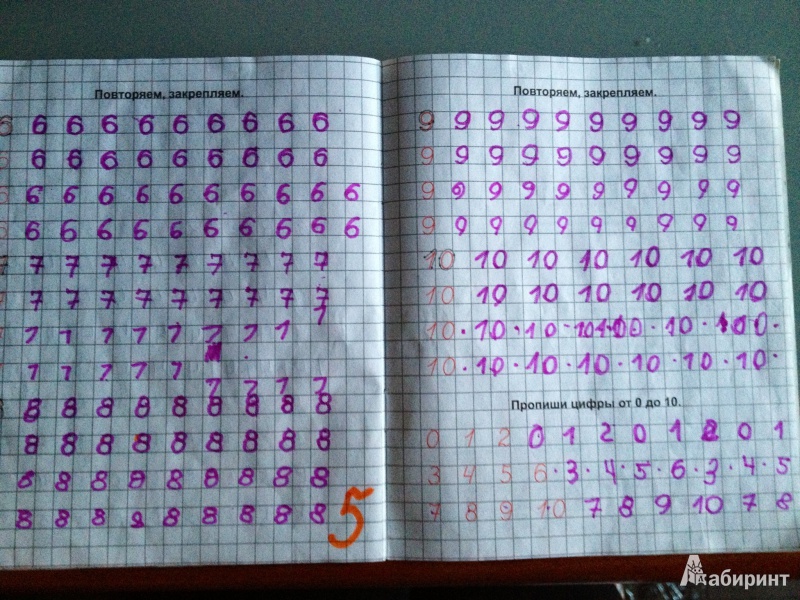 Повторяем, закрепляем.
6 6 6 6 6 6 6 6 6 6
6 6 6 6 6 6 6 6 6 6
6 6 6 6 6 6 6 6 6 6 6
6 6 6 6 6 6 6 6 6 6 6
7 7 7 7 7 7 7 7 7 7
7 7 7 7 7 7 7 7 7 7
7 7 7 7 7 7 7 7 7
7 7 7 7 7
7 7 7 7
8 8 8 8 8 8 8 8 8 8
8 8 8 8 8 8 8 8 8
8 8 8 8 8 8 8 8 8
8 8 8 8 8 8 8 8 8
5
Повторяем, закрепляем.
9 9 9 9 9 9 9 9 9 9
9 9 9 9 9 9 9 9 9 9
9 9 9 9 9 9 9 9 9 9
9 9 9 9 9 9 9 9 9 9
10 10 10 10 10 10 10
10 10 10 10 10 10 10
10 · 10 · 10 · 10 · 10 · 10 · 100 ·
10 · 10 · 10 · 10 · 10 · 10 · 10 ·
Пропиши цифры от 0 до 10.
0 1 2 0 1 2 0 1 2 0 1
3 4 5 6 · 3 · 4 · 5 · 6 · 3 · 4 · 5
7 8 9 10 7 8 9 10 7 8
Лабиринт